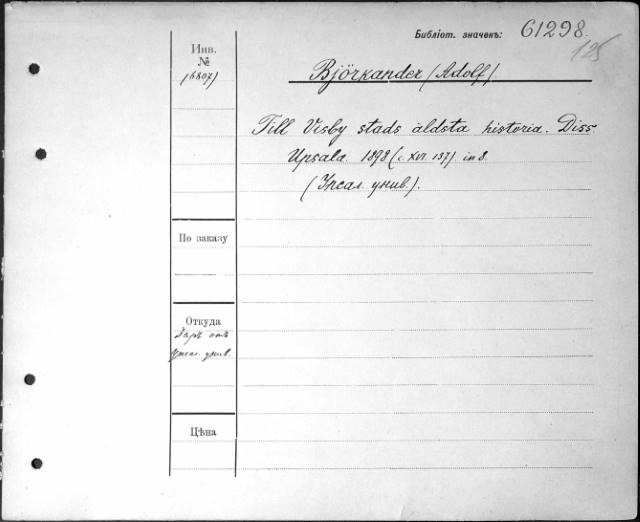 Библіот. значекъ: 61298.
125
Инв.
№
16807)
Björkander (Adolf)
Till Visby stads äldsta historia. Diss
Upsala 1898 (c. XVI 157) in 8.
(Упсал. унив.).
По заказу
Откуда
Даръ отъ
Упсал. унив.
Цѣна